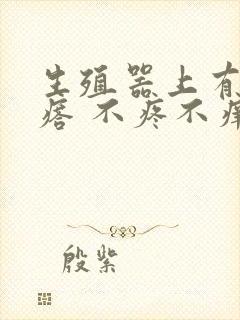 生殖器上有
瘩 不疼不痒
殷紫